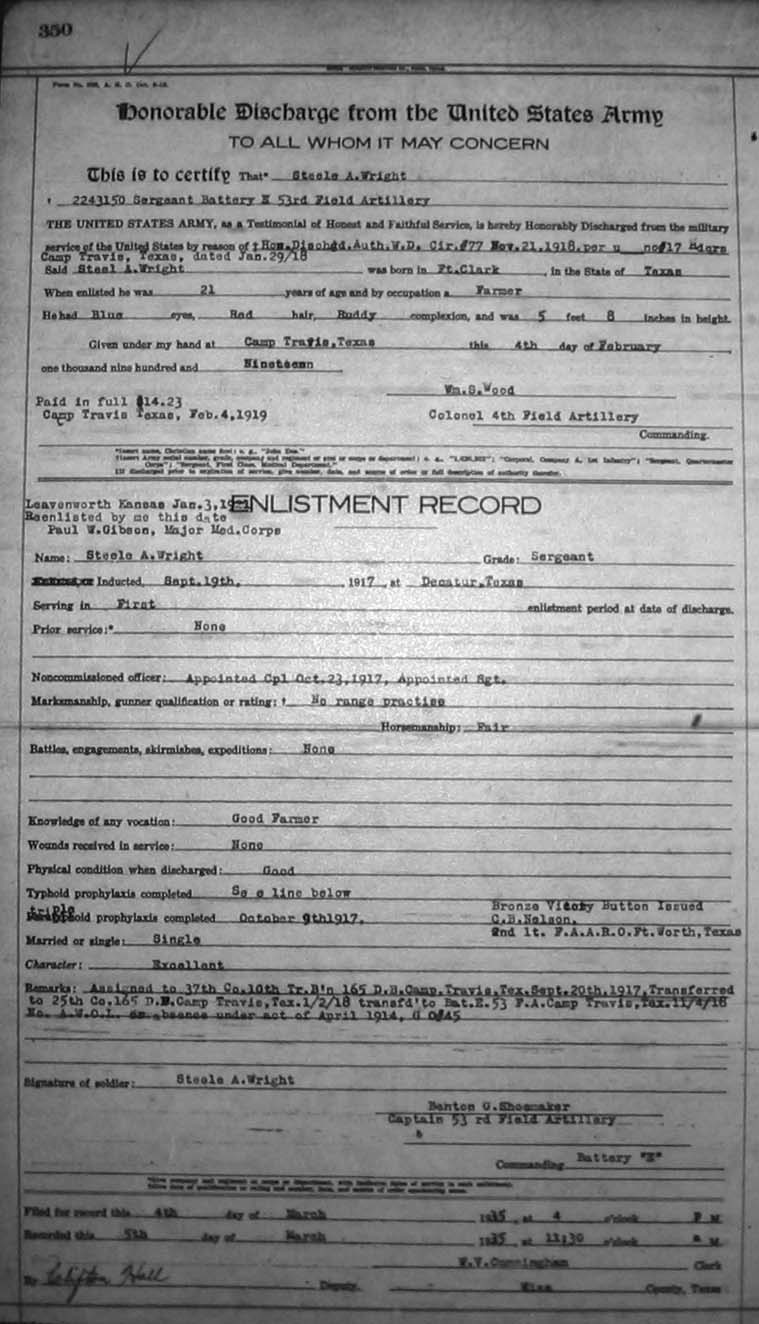 350
Honorable Discharge from the United States Army
TO ALL WHOM IT MAY CONCERN
This is to certify That* Steele A.Wright
† 2243150 Sergeant Battery E 53rd Field Artillery
THE UNITED STATES ARMY, as a Testimonial of Honest and Faithful Service, is hereby Honorably Discharged from the military
service of the United States by reason of ‡ Hon.Dischgd.Auth.W.D. Cir.#77 Nov.21,1918.per u no#17 Hdqrs
Camp Travis, Texas, dated Jan.29/18
Said Steel A.Wright was born in Ft.Clark, in the State of Texas
When enlisted he was 21 years of age and by occupation a Farmer
He had Blue eyes, Red hair, Ruddy complexion, and was 5 feet 8 inches in height.
Given under my hand at Camp Travis,Texas this 4th day of February,
one thousand nine hundred and Nineteenn
Wm.S.Wood
Paid in full $14.23
Camp Travis Texas, Feb.4,1919 Colonel 4th Field Artillery
Commanding.
*Insert name, Christian name first; e. g., "John Doe."
†Insert Army serial number, grade, company and regiment or arm or corps or department; e. g., "Corporal, Company A, 1st Infantry"; "Sergeant, Quartermaster
Corps"; "Sergeant, First Class, Medical Department."
‡If discharged prior to expiration of service, give number, date, and source of order or full description of authority therefor.
Leavenworth Kansas Jan.3, ENLISTMENT RECORD
Reenlisted by me this date
Paul W.Gibson, Major Med.Corps
Name: Steele A.Wright Grade: Sergeant
Inducted, Sept.19th, 1917 at Decatur,Texas
Serving in First enlistment period at date of discharge.
Prior service:* None
Noncommissioned officer: Appointed Cpl Oct.23,1917, Appointed Sgt.
Marksmanship, gunner qualification or rating: † No range practise
Horsemanship: Fair
Battles, engagements, skirmishes, expeditions: None
Knowledge of any vocation: Good Farmer
Wounds received in service: None
Physical condition when discharged: Good
Typhoid prophylaxis completed Se e line below
Bronze Vicoty Button Issued
triple
Paratyphoid prophylaxis completed October 9th1917. C.B.Nelson,
2nd lt. F.A.A.R.O.Ft.Worth,Texas
Married or single: Single
Character: Excellent
Remarks: Assigned to 37th Co.10th Tr.B'n 165 D.B.Camp.Travis,Tex.Sept.20th,1917,Transferred
to 25th Co.165 D.B.Camp Travis,Tex.1/2/18 transfd'to Bat.E.53 F.A.Camp Travis,Tex.11/4/18
No. A.W.O.L. absence under act of April 1914, G O#45
Signature of soldier: Steele A.Wright
Benton G.Shoemaker
Captain 53 rd Field Artillery
Commanding Battery "E"
Filed for record this 4th day of March 1935, at 4 o'clock P M
Recorded this 5th day of March 1935 at 11;30 o'clock a M.
W.V.Cunningham Clerk
By Clifton Hall Deputy. Wise County, Texas